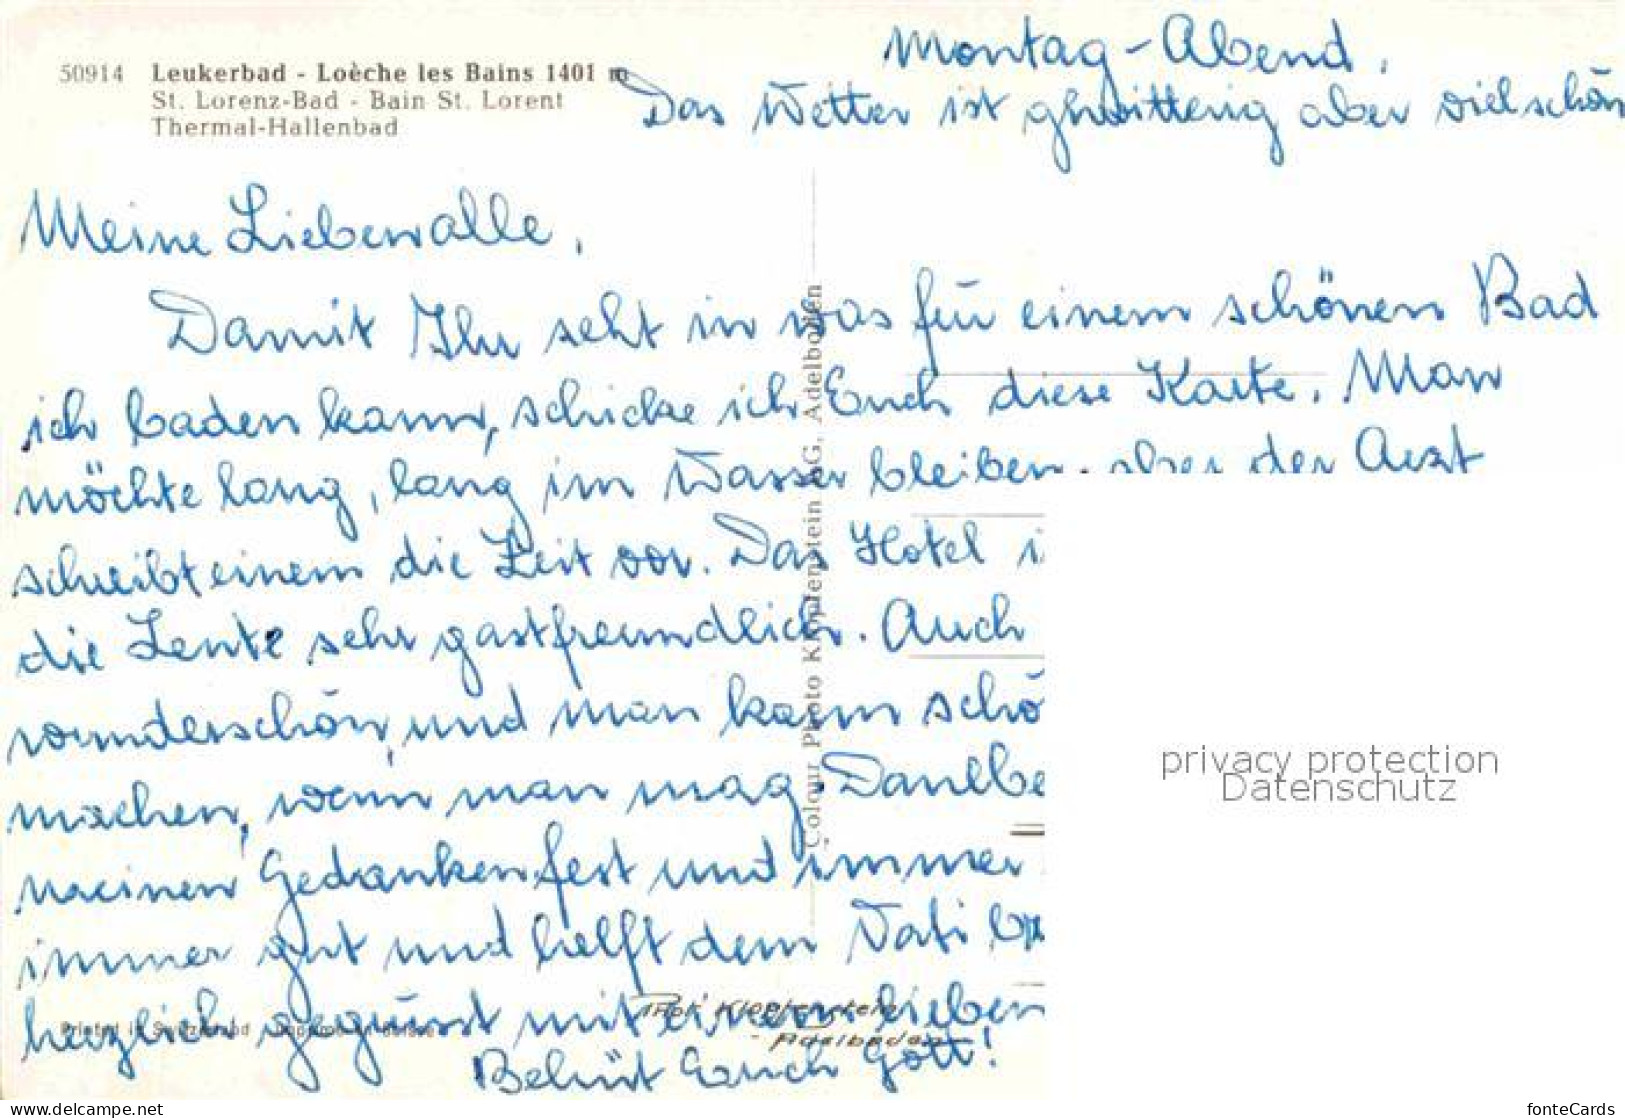 Montag-Abend.
50914 Leukerbad - Loèche les Bains 1401 m
St. Lorenz-Bad - Bain St. Lorent
Thermal-Hallenbad
Das Wetter ist ghwitterig aber viel schön
Meine Lieben alle,
Damit Ihr seht in was für einem schönen Bad
ich baden kann, schicke ich Euch diese Karte. Man
möchte lang, lang im Wasser bleiben. aber der Arzt
schreibt einem die Zeit vor. Das Hotel i
die Leute sehr gastfreundlich. Auch
wunderschön, und man kann schö
machen, wenn man mag.
meinen Gedanken fest und immer
immer gut und helft dem Vati
herzlich gegrüsst mit einem lieben
Behüt Euch Gott!
Colour Photo Klopfenstein AG. Adelboden
Printed in Switzerland Imprimé en Suisse
Phot Klopfenstein
- Adelboden -
privacy protection
Datenschutz
www.delcampe.net
fonteCards